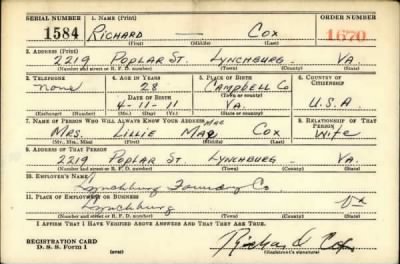 SERIAL NUMBER 1. NAME (Print) ORDER NUMBER
1584 RICHARD — COX 1670
(First) (Middle) (Last)
2. ADDRESS (Print)
2219 POPLAR ST. LYNCHBURG VA.
(Number and street or R. F. D. number) (Town) (County) (State)
3. TELEPHONE 4. AGE IN YEARS 5. PLACE OF BIRTH 6. COUNTRY OF CITIZENSHIP
none 28 CAMPBELL CO
DATE OF BIRTH (Town or county)
4-11-11 VA. U.S.A
(Exchange) (Number) (Mo.) (Day) (Yr.) (State or country)
7. NAME OF PERSON WHO WILL ALWAYS KNOW YOUR ADDRESS 8. RELATIONSHIP OF THAT PERSON
MAE
MRS. LILLIE MAE COX WIFE
(Mr., Mrs., Miss) (First) (Middle) (Last)
9. ADDRESS OF THAT PERSON
2219 POPLAR ST. LYNCHBURG — VA.
(Number and street or R. F. D. number) (Town) (County) (State)
10. EMPLOYER'S NAME
Lynchburg Foundry Co
11. PLACE OF EMPLOYMENT OR BUSINESS
Lynchburg Va
(Number and street or R. F. D. number) (Town) (County) (State)
I AFFIRM THAT I HAVE VERIFIED ABOVE ANSWERS AND THAT THEY ARE TRUE.
REGISTRATION CARD
D. S. S. Form 1 (over) (Registrant's signature)
Richard Cox